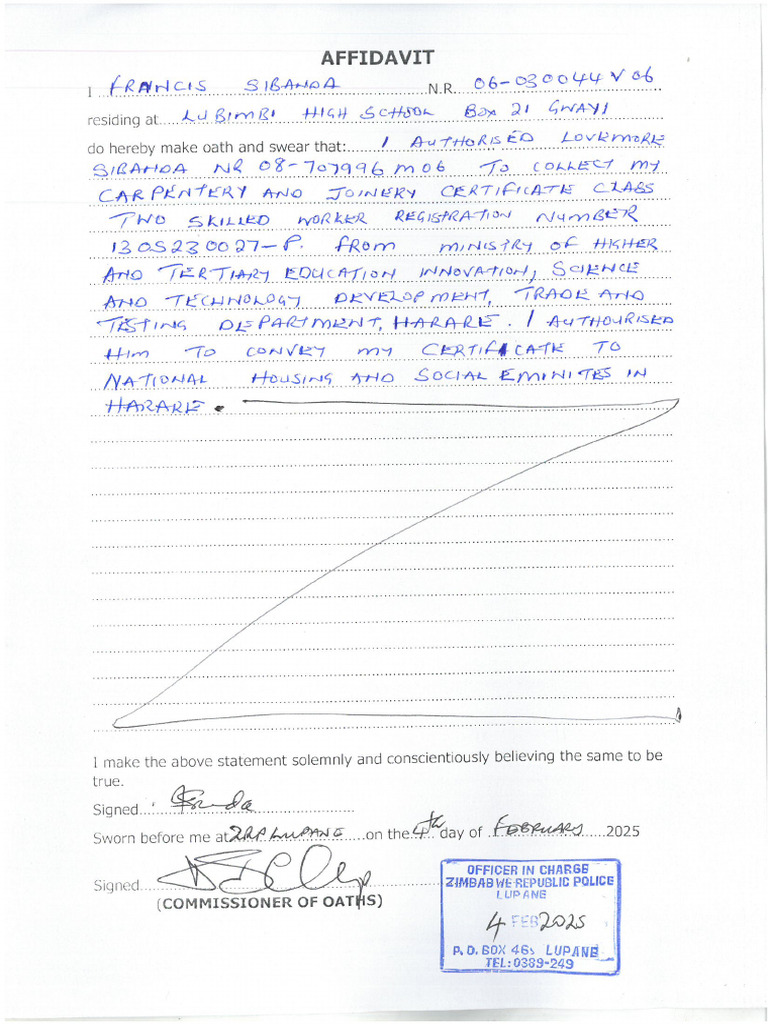 AFFIDAVIT
I FRANCIS SIBANDA N.R. 06-030044 V 06
residing at LUBIMBI HIGH SCHOOL BOX 21 GWAYI
do hereby make oath and swear that: I AUTHORISED LOVEMORE
SIBANDA NR 08-707996 M 06 TO COLLECT MY
CARPENTERY AND JOINERY CERTIFICATE CLASS
TWO SKILLED WORKER REGISTRATION NUMBER
130S230027-P. FROM MINISTRY OF HIGHER
AND TERTIARY EDUCATION INNOVATION, SCIENCE
AND TECHNOLOGY DEVELOPMENT, TRADE AND
TESTING DEPARTMENT, HARARE. I AUTHOURISED
HIM TO CONVEY MY CERTIFICATE TO
NATIONAL HOUSING AND SOCIAL EMINITES IN
HARARE.
I make the above statement solemnly and conscientiously believing the same to be
true.
Signed
Sworn before me at ZRP LUPANE on the 4th day of FEBRUARY 2025
Signed
(COMMISSIONER OF OATHS)
OFFICER IN CHARGE
ZIMBABWE REPUBLIC POLICE
LUPANE
4 FEB 2025
P.O. BOX 46, LUPANE
TEL: 0389-249